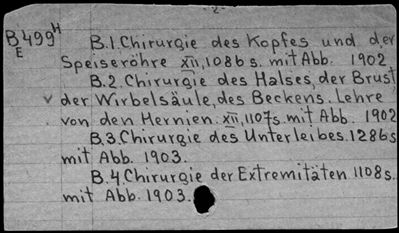 -2-
B 499 H
E
B.1. Chirurgie des Kopfes und der
Speiseröhre XII, 1086 s. mit Abb. 1902
B.2. Chirurgie des Halses, der Brust
v der Wirbelsäule, des Beckens. Lehre
von den Hernien. XII, 1107s. mit Abb. 1902
B.3. Chirurgie des Unterleibes. 1286s
mit Abb. 1903.
B.4. Chirurgie der Extremitäten 1108 s.
mit Abb. 1903.